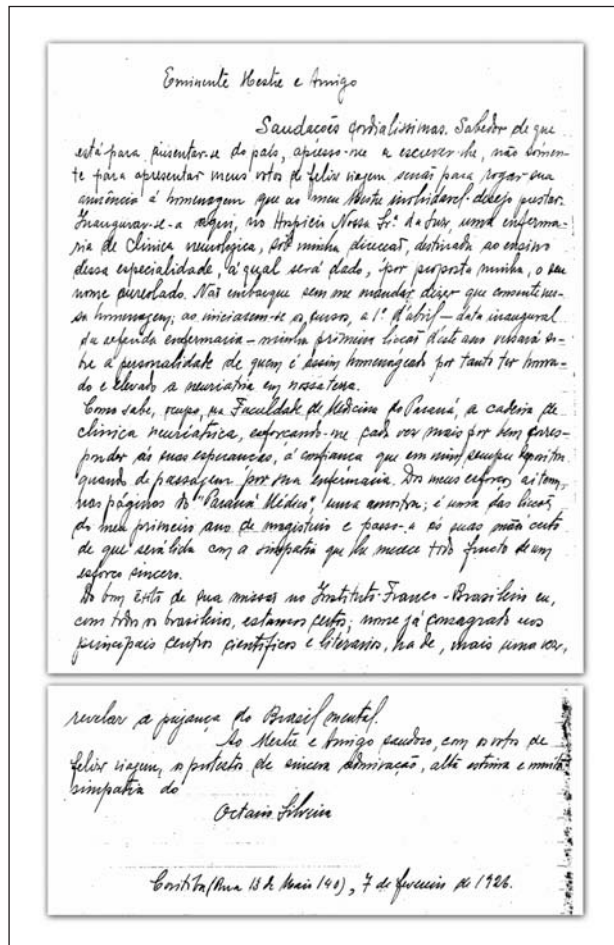 Eminente Mestre e Amigo
Saudações cordialissimas. Sabedor de que
está para ausentar-se do paìs, apresso-me a escrever-lhe, não somen-
te para apresentar meus votos de feliz viagem senão para rogar sua
anuência á homenagem que ao meu Mestre inolvidavel desejo prestar.
Inaugurar-se-a aqui, no Hospicio Nossa Srª. da Luz, uma enferma-
ria de Clinica neurologica, sob minha direcção, destinada ao ensino
dessa especialidade, á qual será dado, por proposta minha, o seu
nome aureolado. Não embarque sem me mandar dizer que consente nes-
sa homenagem; ao iniciarem-se os cursos, a 1º d'abril — data inaugural
da referida enfermaria — minha primeira lição d'este ano versará so-
bre a personalidade de quem é assim homenageado por tanto ter honra-
do e elevado a neuriatria em nossa terra.
Como sabe, ocupo, na Faculdade de Medicina do Paraná, a cadeira de
clinica neuriatrica, esforçando-me cada vez mais por bem corres-
ponder ás suas esperanças, á confiança que em mim sempre depositou
quando de passagem por sua enfermaria. Dos meus esforços ai tem,
nas páginas do "Paraná Médico", uma amostra; é uma das lições
do meu primeiro ano de magisterio e passo-a ás suas mãos certo
de que será lida com a simpatia que lhe merece todo fructo de um
esforço sincero.
Do bom êxito de sua missão no Instituto Franco-Brasileiro eu,
com todos os brasileiros, estamos certos; nome já consagrado nos
principais centros cientificos e literarios, ha de, mais uma vez,
revelar a pujança do Brasil mental.
Ao Mestre e Amigo saudoso, com os votos de
feliz viagem, os protestos de sincera admiração, alta estima e muita
simpatia do
Octavio Silveira
Coritiba (Rua 13 de Maio 140), 7 de fevereiro de 1926.